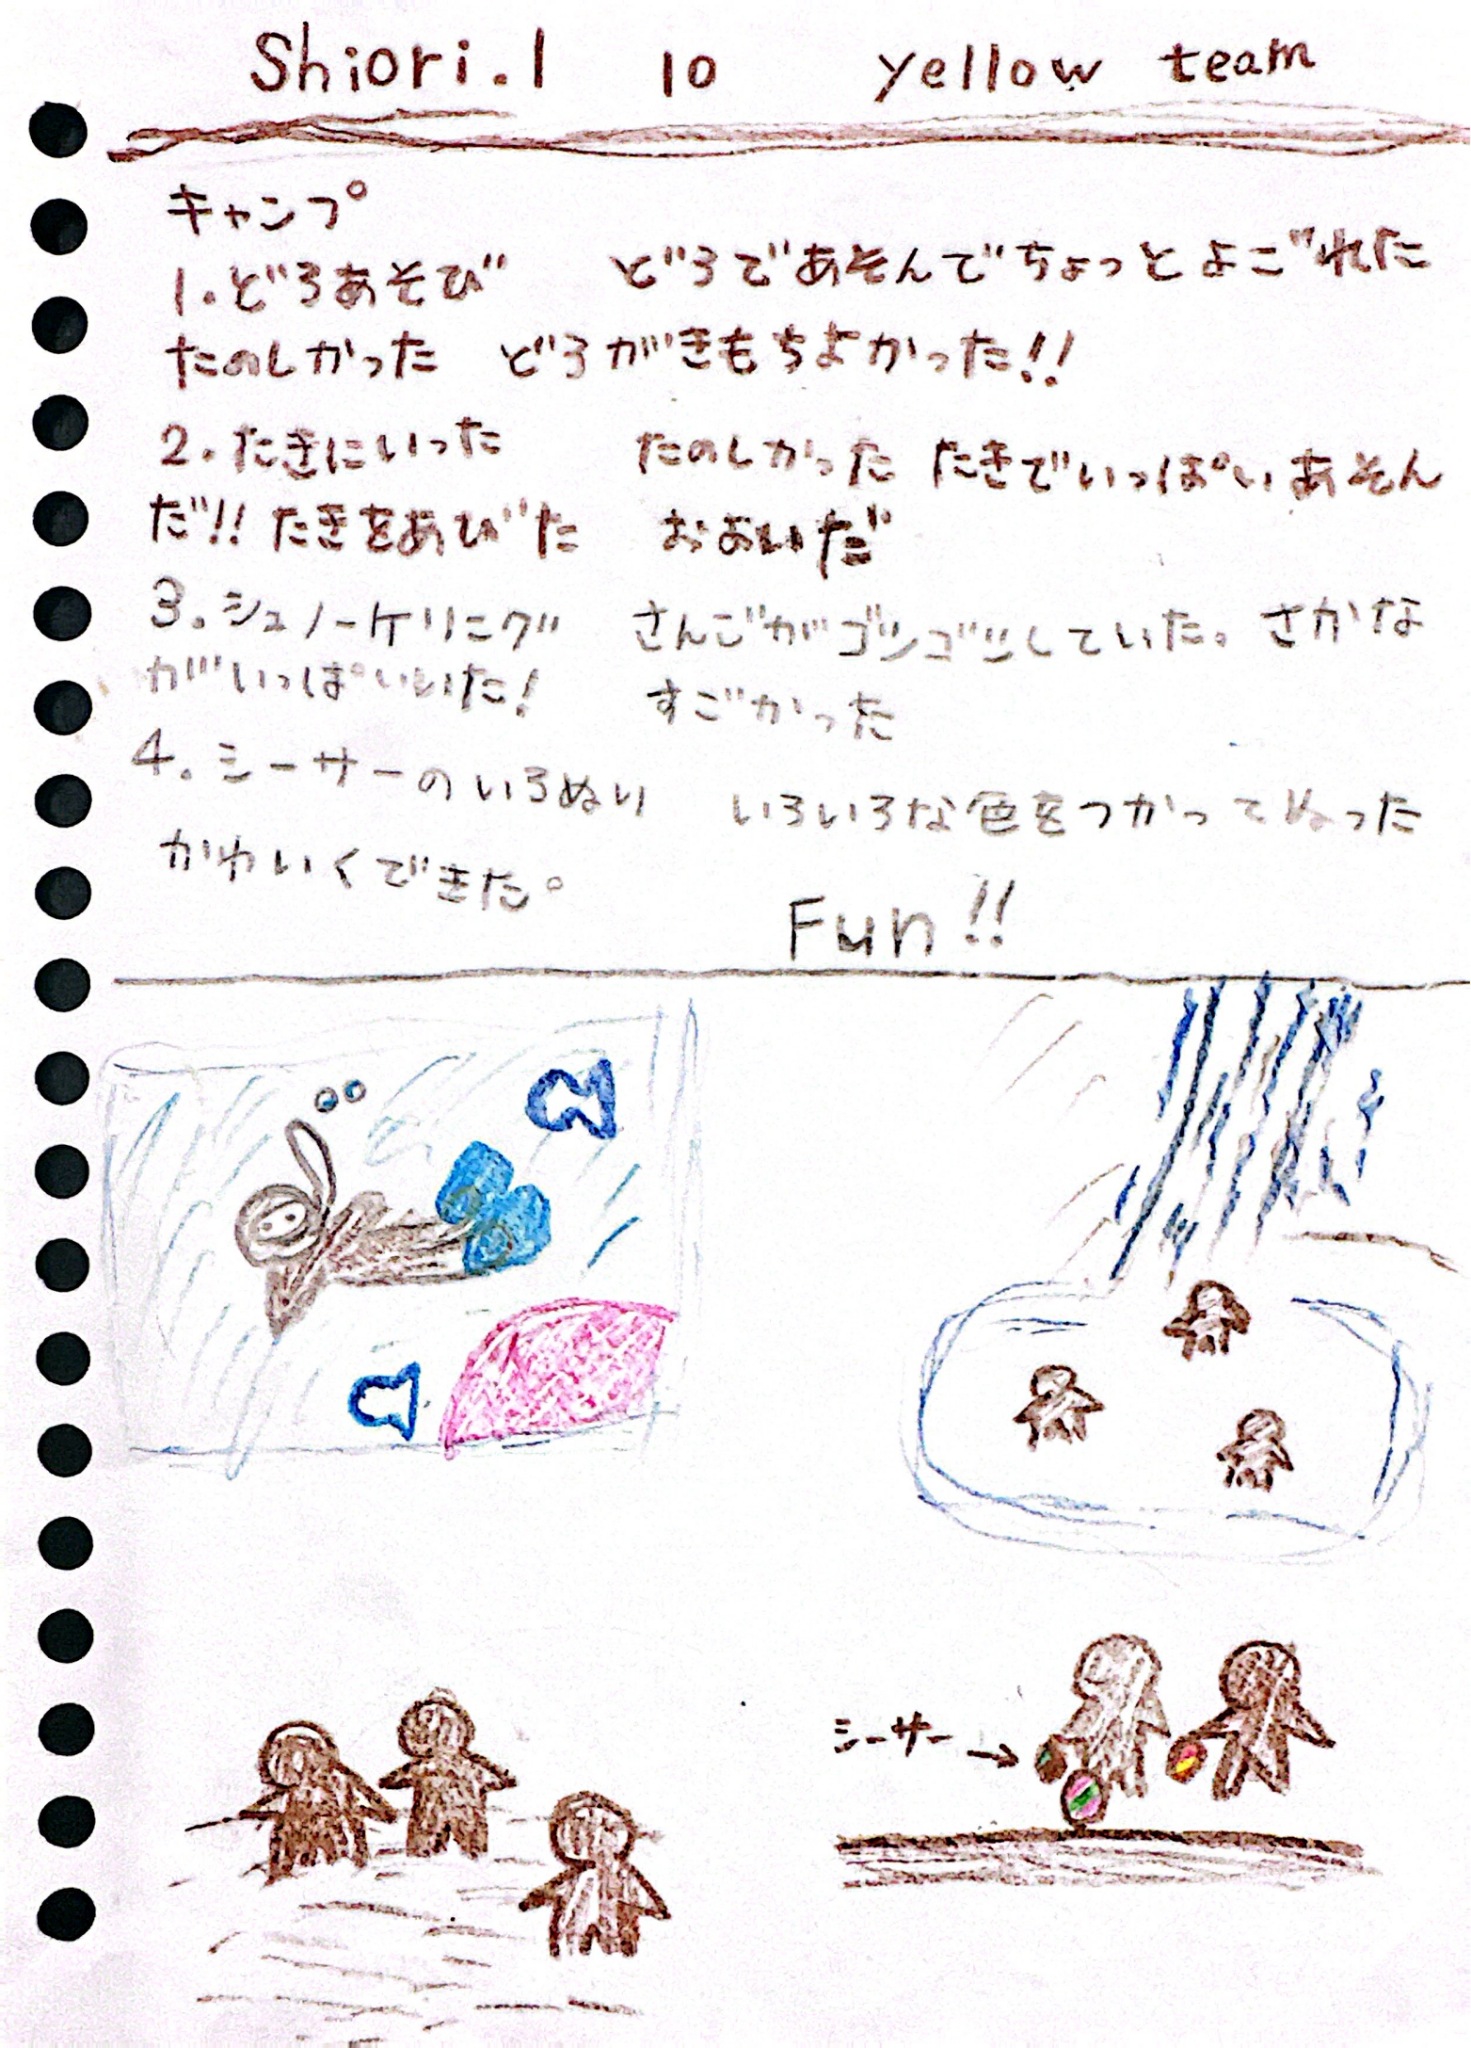 Shiori.I 10 yellow team
キャンプ
1.どろあそび どろであそんでちょっとよごれた
たのしかった どろがきもちよかった!!
2.たきにいった たのしかった たきでいっぱいあそん
だ!! たきをあびた およいだ
3.シュノーケリング さんごがゴツゴツしていた。さかな
がいっぱいいた! すごかった
4.シーサーのいろぬり いろいろな色をつかってぬった
かわいくできた。
Fun!!
シーサー→